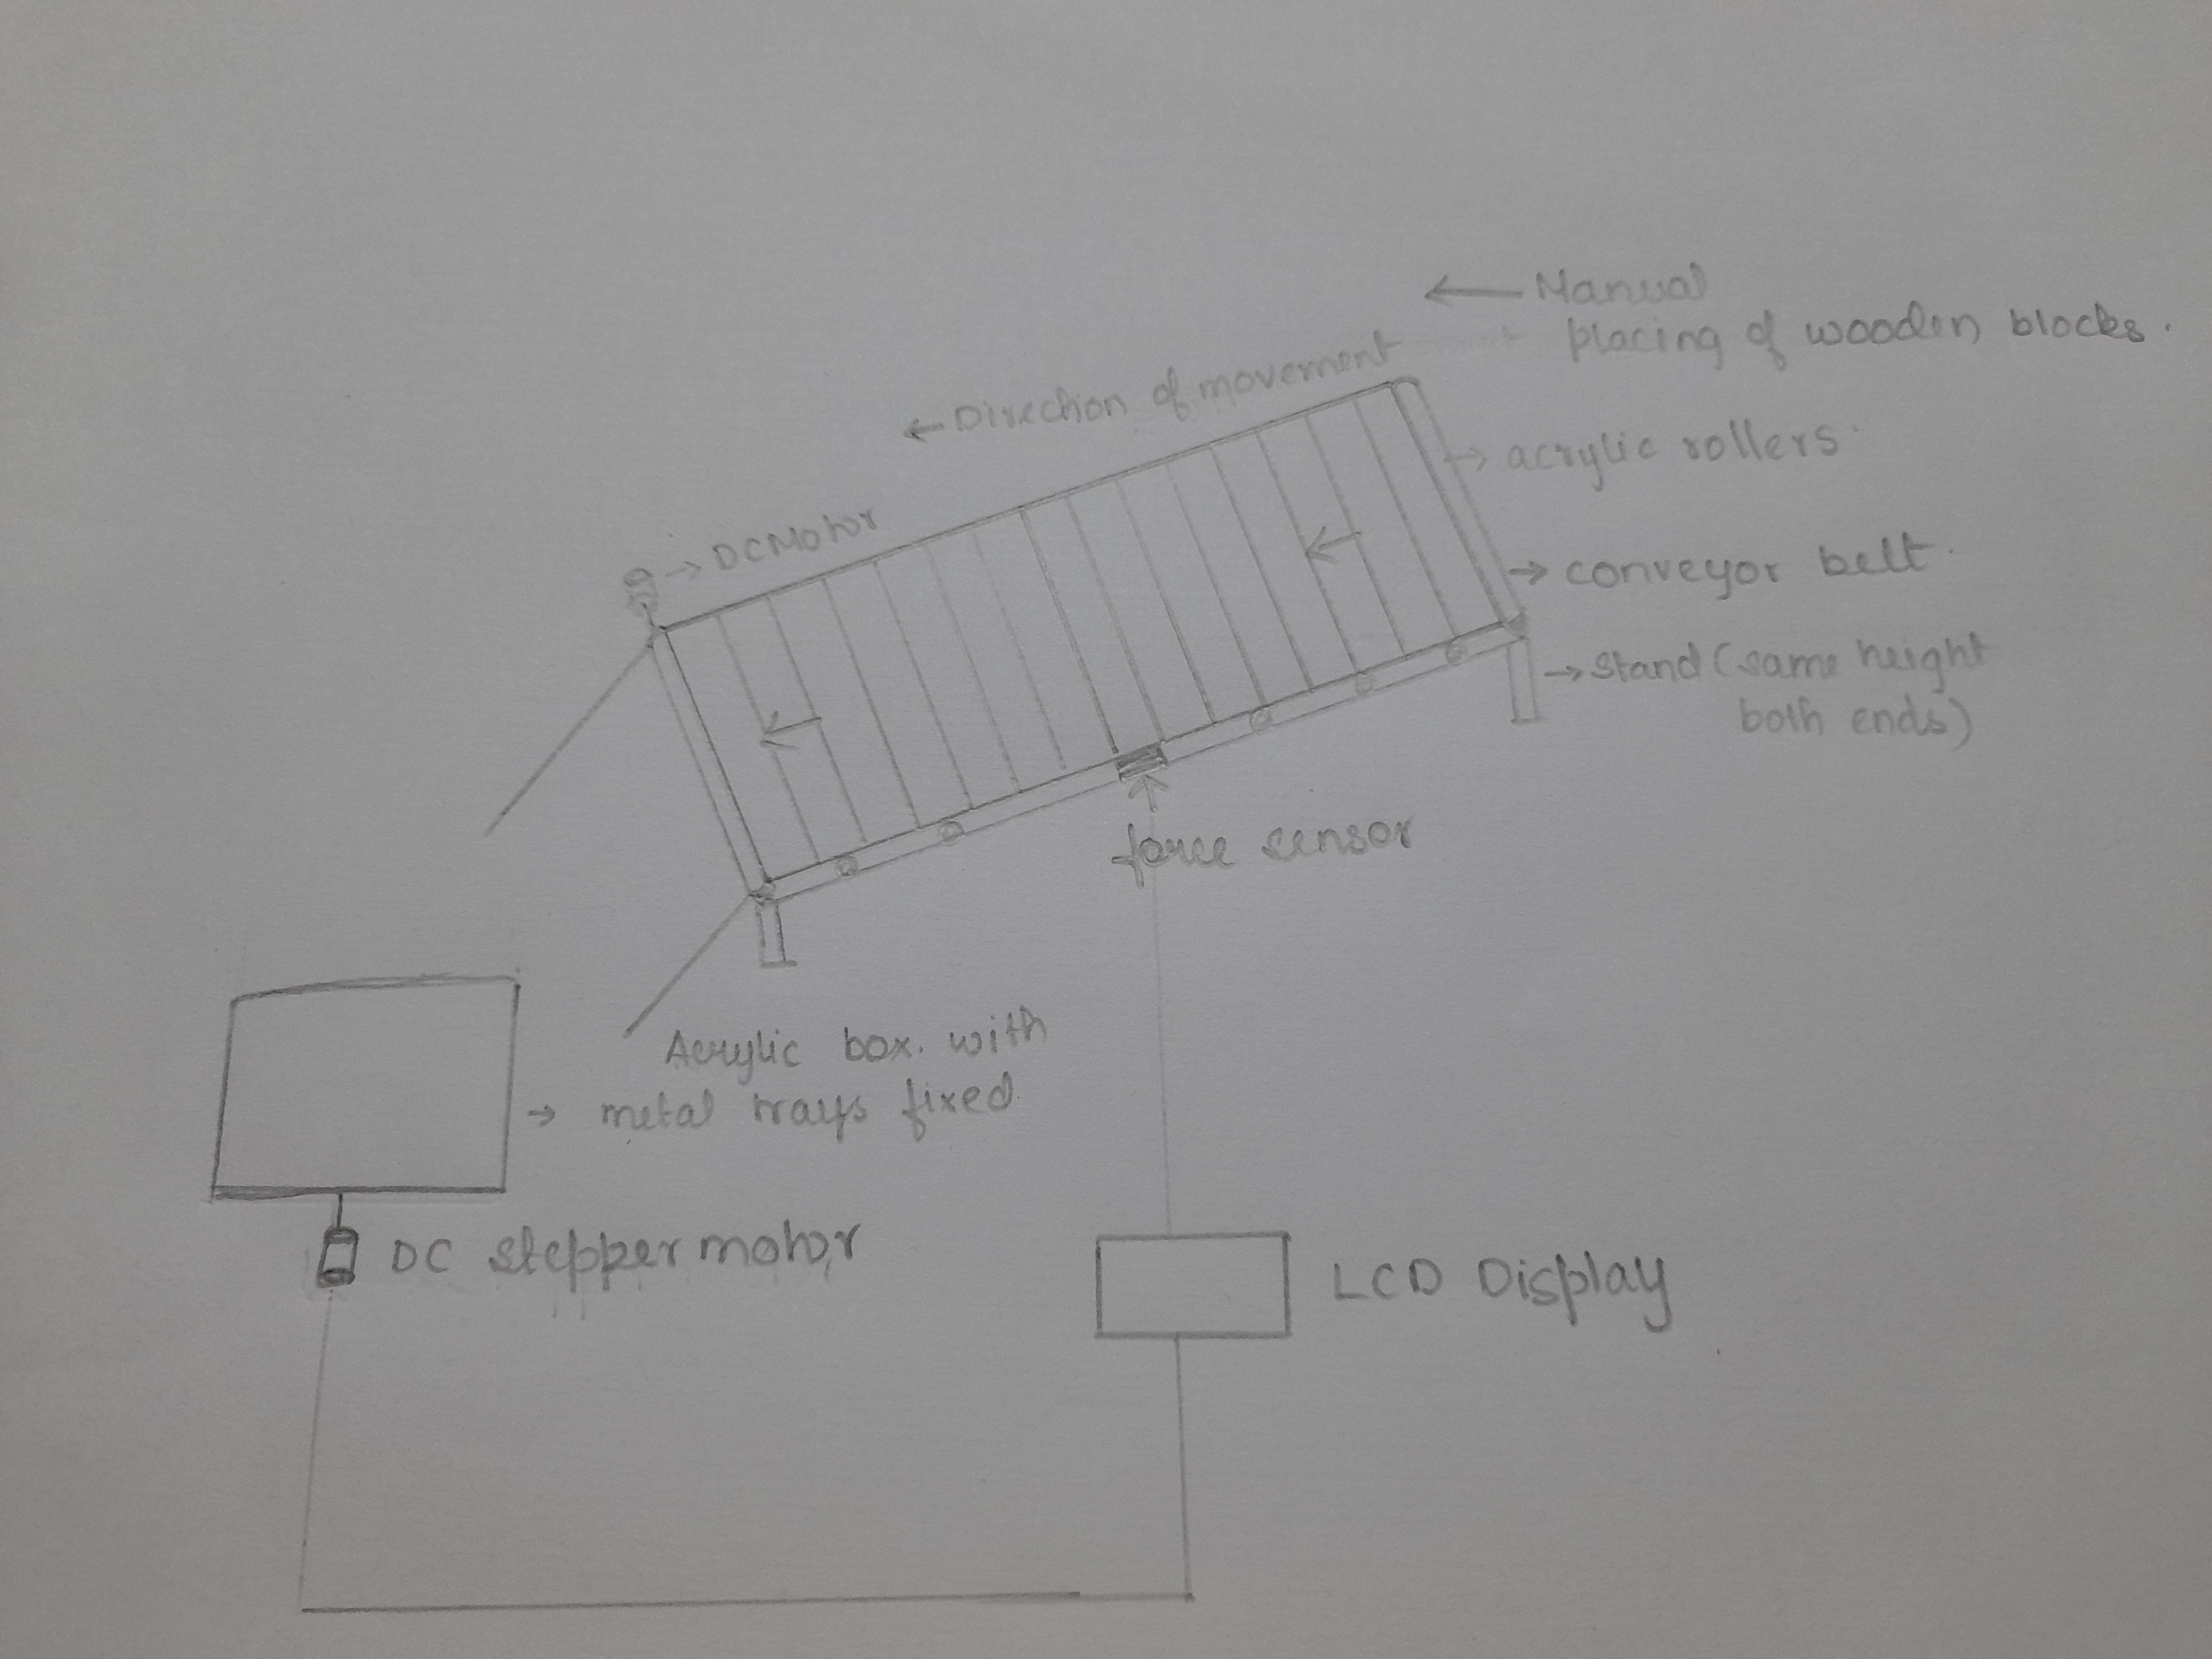 ← Manual
placing of wooden blocks.
← Direction of movement
→ acrylic rollers.
→ DC Motor
→ conveyor belt.
→ Stand (same height
both ends)
force sensor
Acrylic box. with
→ metal trays fixed
DC stepper motor
LCD Display